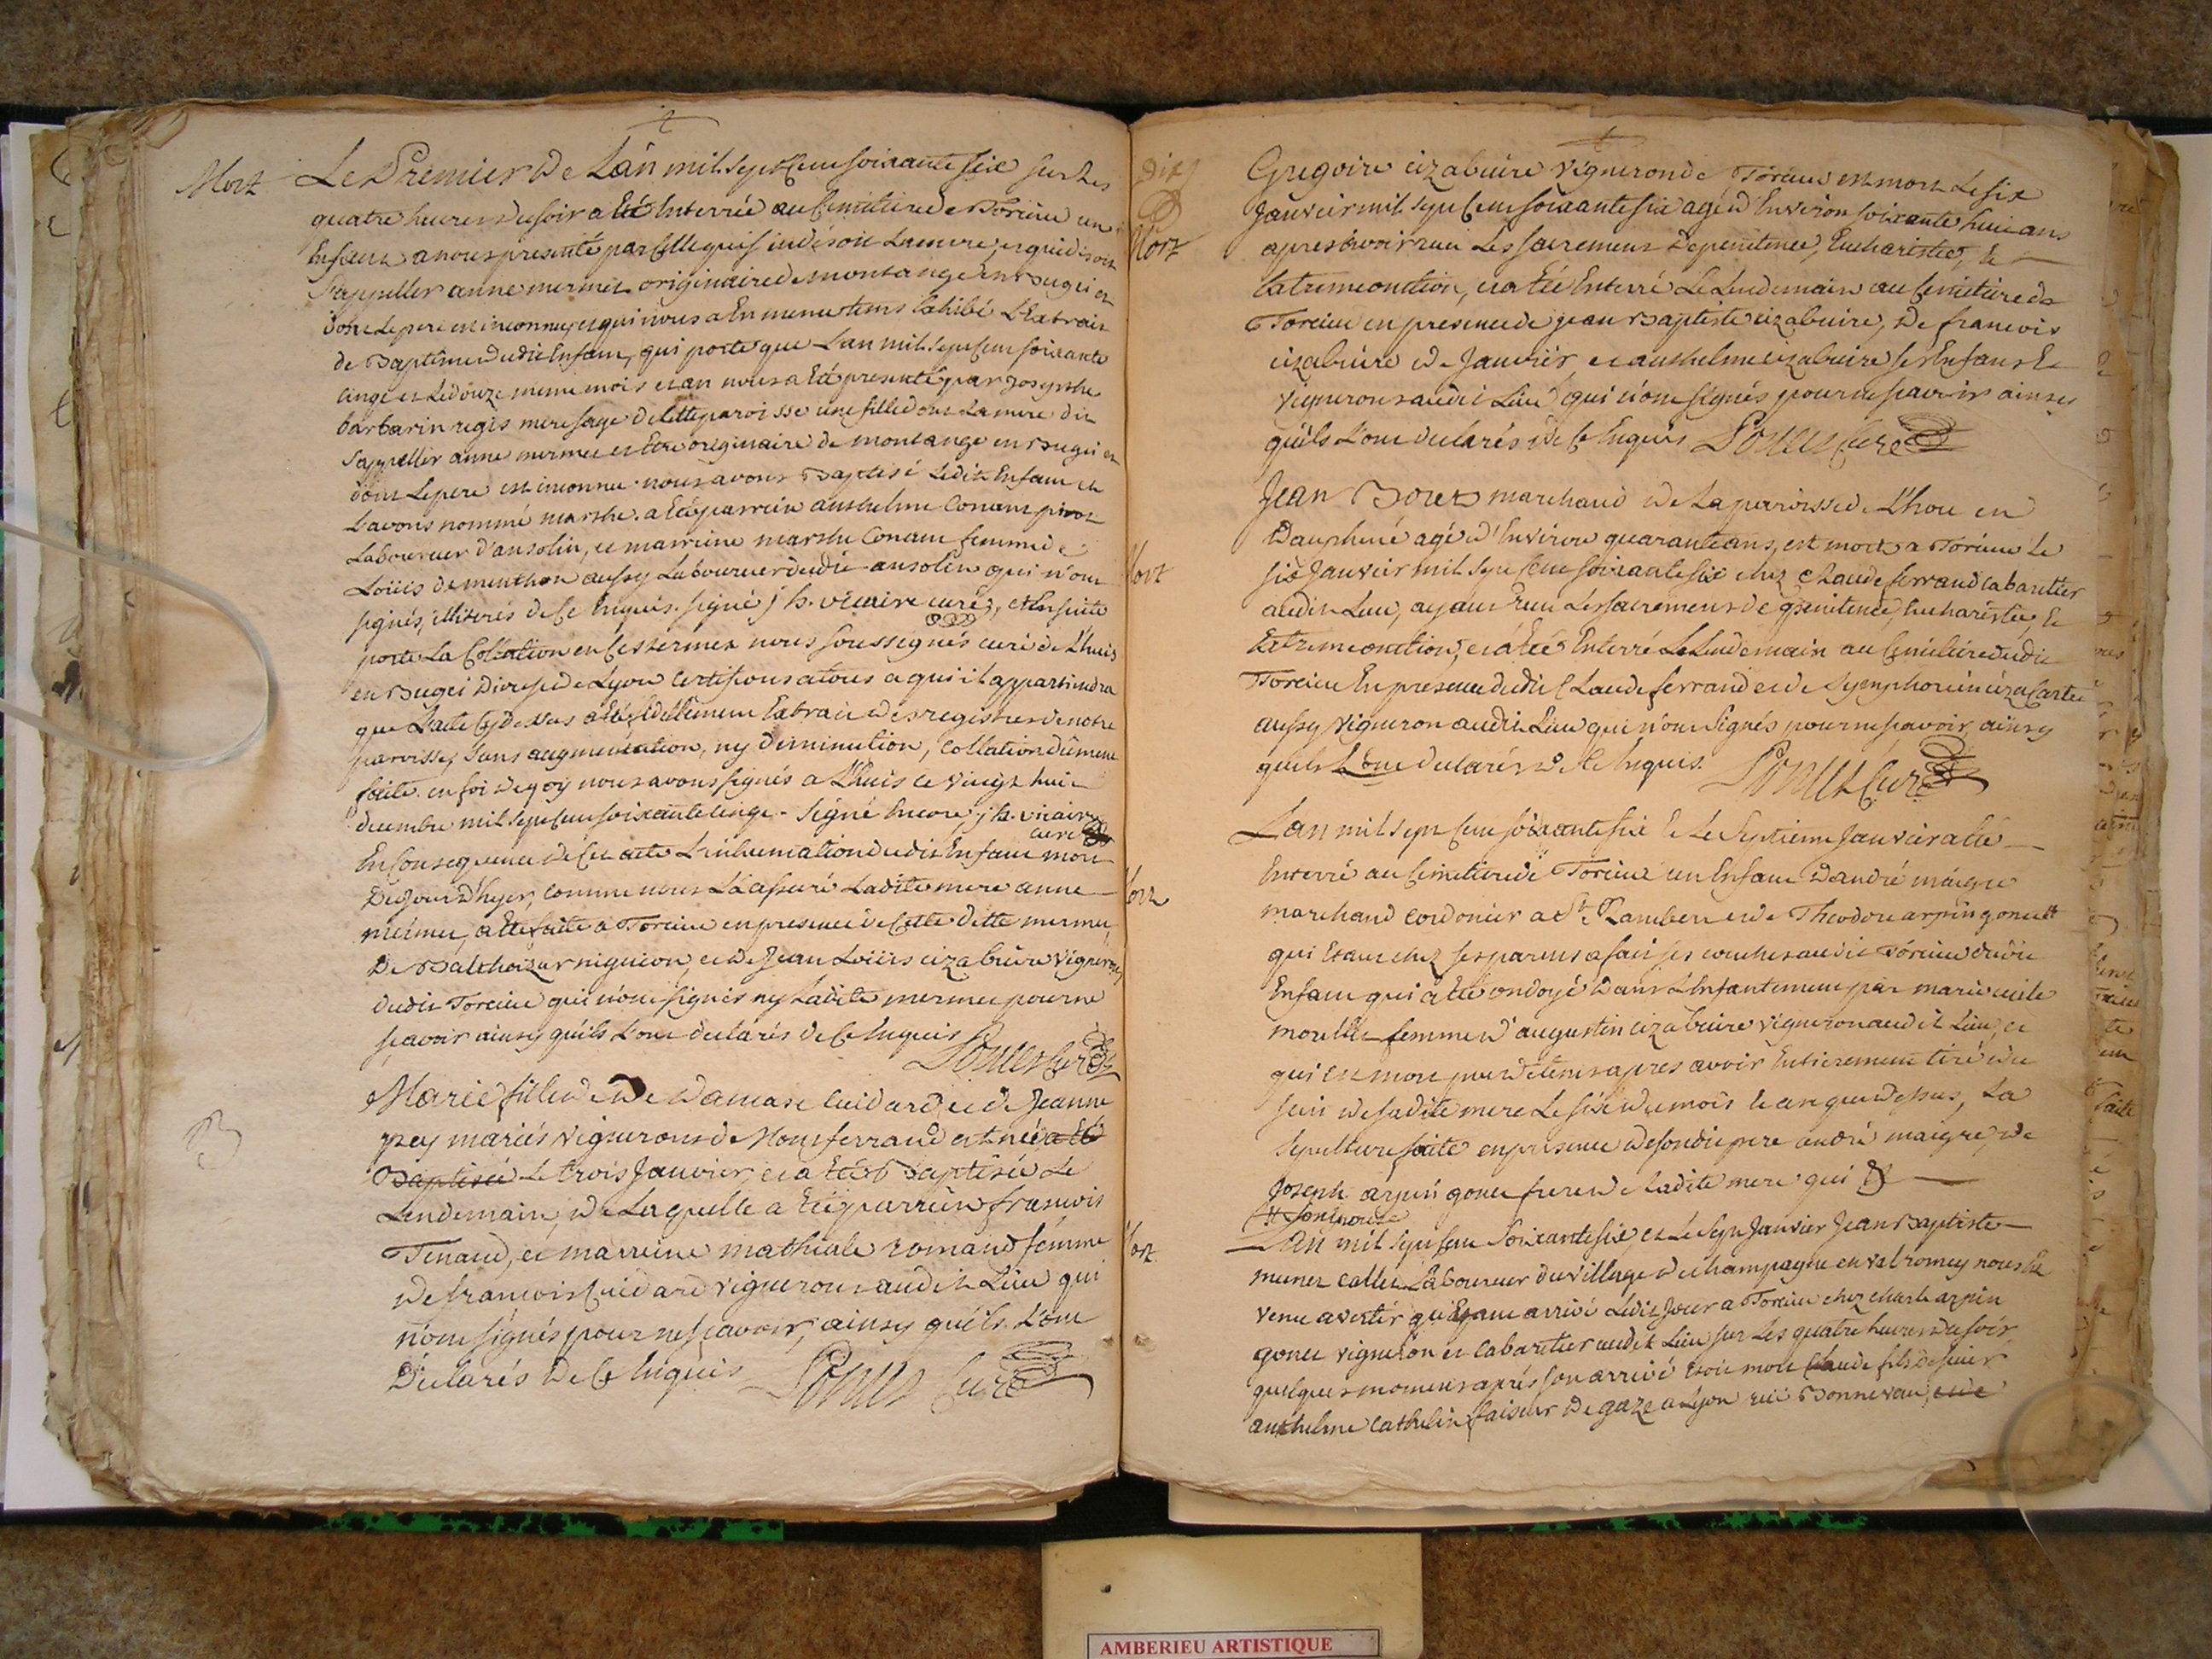 Mort
Le Premier de Lân mil sept Cens soixante six sur Les
quatre heures du soir a Eté Enterrée au Cemitiere de Torcieu un
Enfant a nous presenté par Celle qui s'en disoit La mere, et qui disoit
s'appeller anne mermet originaire de montange en Bugei et
dont Le pere est inconnu, et qui nous a En meme tems Exhibé L'Extrait
de Baptême dudit Enfant, qui porte que L'an mil sept Cens soixante
cinq et Le douze meme mois et an nous a Eté presenté par josephte
barbarin regis mere sage de Cette paroisse une fille dont La mere dit
s'appeller anne mermet et Etre originaire de montange en Bugei et
dont Le pere est inconnu. nous avons Baptisé Ledit Enfant et
L'avons nommé marthe. a Eté parrein anthelme Conam
Laboureur d'ansolin, et marreine marthe Conam femme de
Loüis dementhon aussy Laboureur dudit ansolin qui n'ont
signés, illiterés de Ce Enquis. signé j b. vicaire curé, et Ensuite
porte La Collation en Ces termes nous soussignés curé de L'huis
en Bugei Diocese de Lyon Certifions a tous a qui il appartiendra
que L'acte Cy dessus a Eté fidellement Extrait des registres de notre
paroisse, sans augmentation, ny diminution, Collation dûment
faite. en foi de qoy nous avons signés a L'huis ce vingt huit
decembre mil sept Cens soixante cinq. signé Encore, j b. vicaire
curé
En Consequence de Cet acte L'inhumation dudit Enfant mort
Dejour d'hyer, comme nous L'a assuré Ladite mere anne
mermet, a Eté faite a Torcieu en presence de Cette dette mermet,
De Balthazar niguion, et de Jean Loüis cizabuire Vignerons
dudit Torcieu qui n'ont signés ny Ladite mermet pour ne
sçavoir ainsy qu'ils L'ont declarés de Ce Enquis
Ponces Curé
B
Marie fille de De damase Cuidard et de Jeanne
prey mariés vignerons de Montferrand est née a Eté
Baptisée Le trois Janvier, et a Eté Baptisée Le
Lendemain, de Laquelle a Eté parrein francois
Tenand, et marreine mathiale romand femme
de francois Cuidard vignerons audit Lieu qui
n'ont signés pour ne sçavoir, ainsy qu'ils L'ont
Declarés De Ce Enquis Ponces Curé
Mort
Gregoire cizabuire Vigneron de Torcieu est mort Le six
Janvier mil sept Cens soixante six agé d'Environ soixante huit ans
apres avoir recu Les sacremens De penitence, Eucharistie, Et
Extremeonction, et a Eté Enterré Le Lendemain au Cemitiere de
Torcieu en presence de jean Baptiste cizabuire, De francois
cizabuire et de Janvier, et anthelme cizabuire ses Enfans Et
vignerons audit Lieu qui n'ont signés pour ne sçavoir ainsy
qu'ils L'ont declarés de Ce Enquis Ponces Curé
Mort
Jean Boret marchand de La paroisse de L'hou en
Dauphiné agé d'Environ quarante ans, est mort a Torcieu Le
six Janvier mil sept Cens soixante six chez Claude ferrand Cabaretier
audit Lieu, ayant recu Les sacremens de penitence, Eucharistie, Et
Extremeonction, et a Eté Enterré Le Lendemain au Cemitiere dudit
Torcieu En presence dudit Claude ferrand et de Symphorien
aussy Vigneron audit Lieu qui n'ont signés pour ne sçavoir, ainsy
qu'ils L'ont declarés de Ce Enquis. Ponces Curé
Mort
L'an mil sept Cens soixante six Et Le Septieme Janvier a Eté
Enterré au Cemitiere de Torcieu un Enfant d'andré maigre
marchand Cordonier a St Rambert et de Theodore arpin gonet
qui Etant chez ses parens a fait ses couches audit Torcieu dudit
Enfant qui a Eté ondoyé Dans L'Enfantement par marie
morelle femme d'augustin cizabuire vigneron audit Lieu, et
qui est mort peu de tems apres avoir Entierement tiré du
sein de sadite mere Le six du mois Et an que dessus, La
sepulture faite en presence de sondit pere andré maigre, de
Joseph arpin gonet frere de Ladite mere qui
Mort
L'an mil sept Cens Soixante six, et Le sept Janvier Jean Baptiste
munet callet Laboureur du village de champagne en valromey nous Est
venu avertir qu'Etant arrivé Ledit Jour a Torcieu chez charle arpin
gonet vigneron et cabaretier audit Lieu sur Les quatre heures du soir
quelques momens aprés son arrivé Etoit mort Claude fils De feu
anthelme Cathelin faiseur De gaze a Lyon ruë Bonnevau,
AMBERIEU ARTISTIQUE